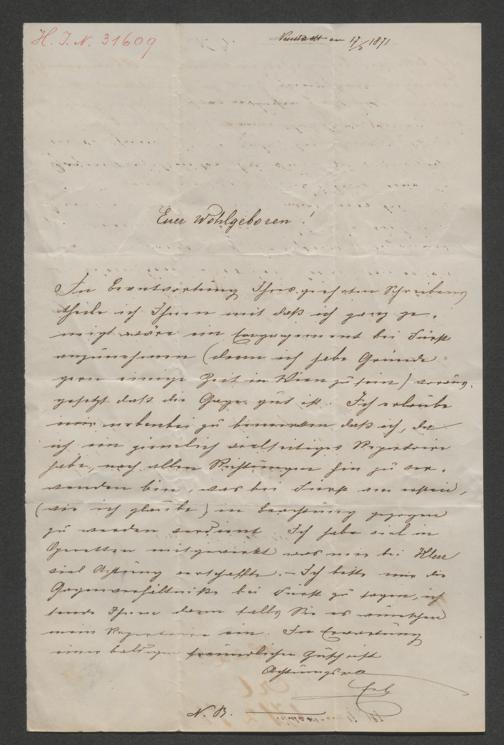 H. I. N. 31609
17/5 1871
Euer Wohlgeboren!
In Beantwortung Ihres geehrten Schreibens
theile ich Ihnen mit daß ich ganz ge-
neigt wäre ein Engagement bei Fürst
anzunehmen (denn ich habe Gründe
gern einige Zeit in Wien zu sein) voraus-
gesetzt daß die Gage gut ist. Ich erlaube
mir nebenbei zu bemerken daß ich, da
ich ein ziemlich vielseitiges Repertoire
habe, nach allen Richtungen hin zu ver-
wenden bin, was bei Fürst
(wie ich glaube) in gezogen
zu werden verdient. Ich habe viel in
Operetten mitgewirkt was mir bei
viel Achtung verschaffte. – Ich bitte mir die
Gagenverhältniße bei Fürst zu sagen, ich
sende Ihnen dann falls Sie es wünschen
mein Repertoire ein. In Erwartung
einer baldigen freundlichen Zuschrift
Achtungsvoll
N. B.